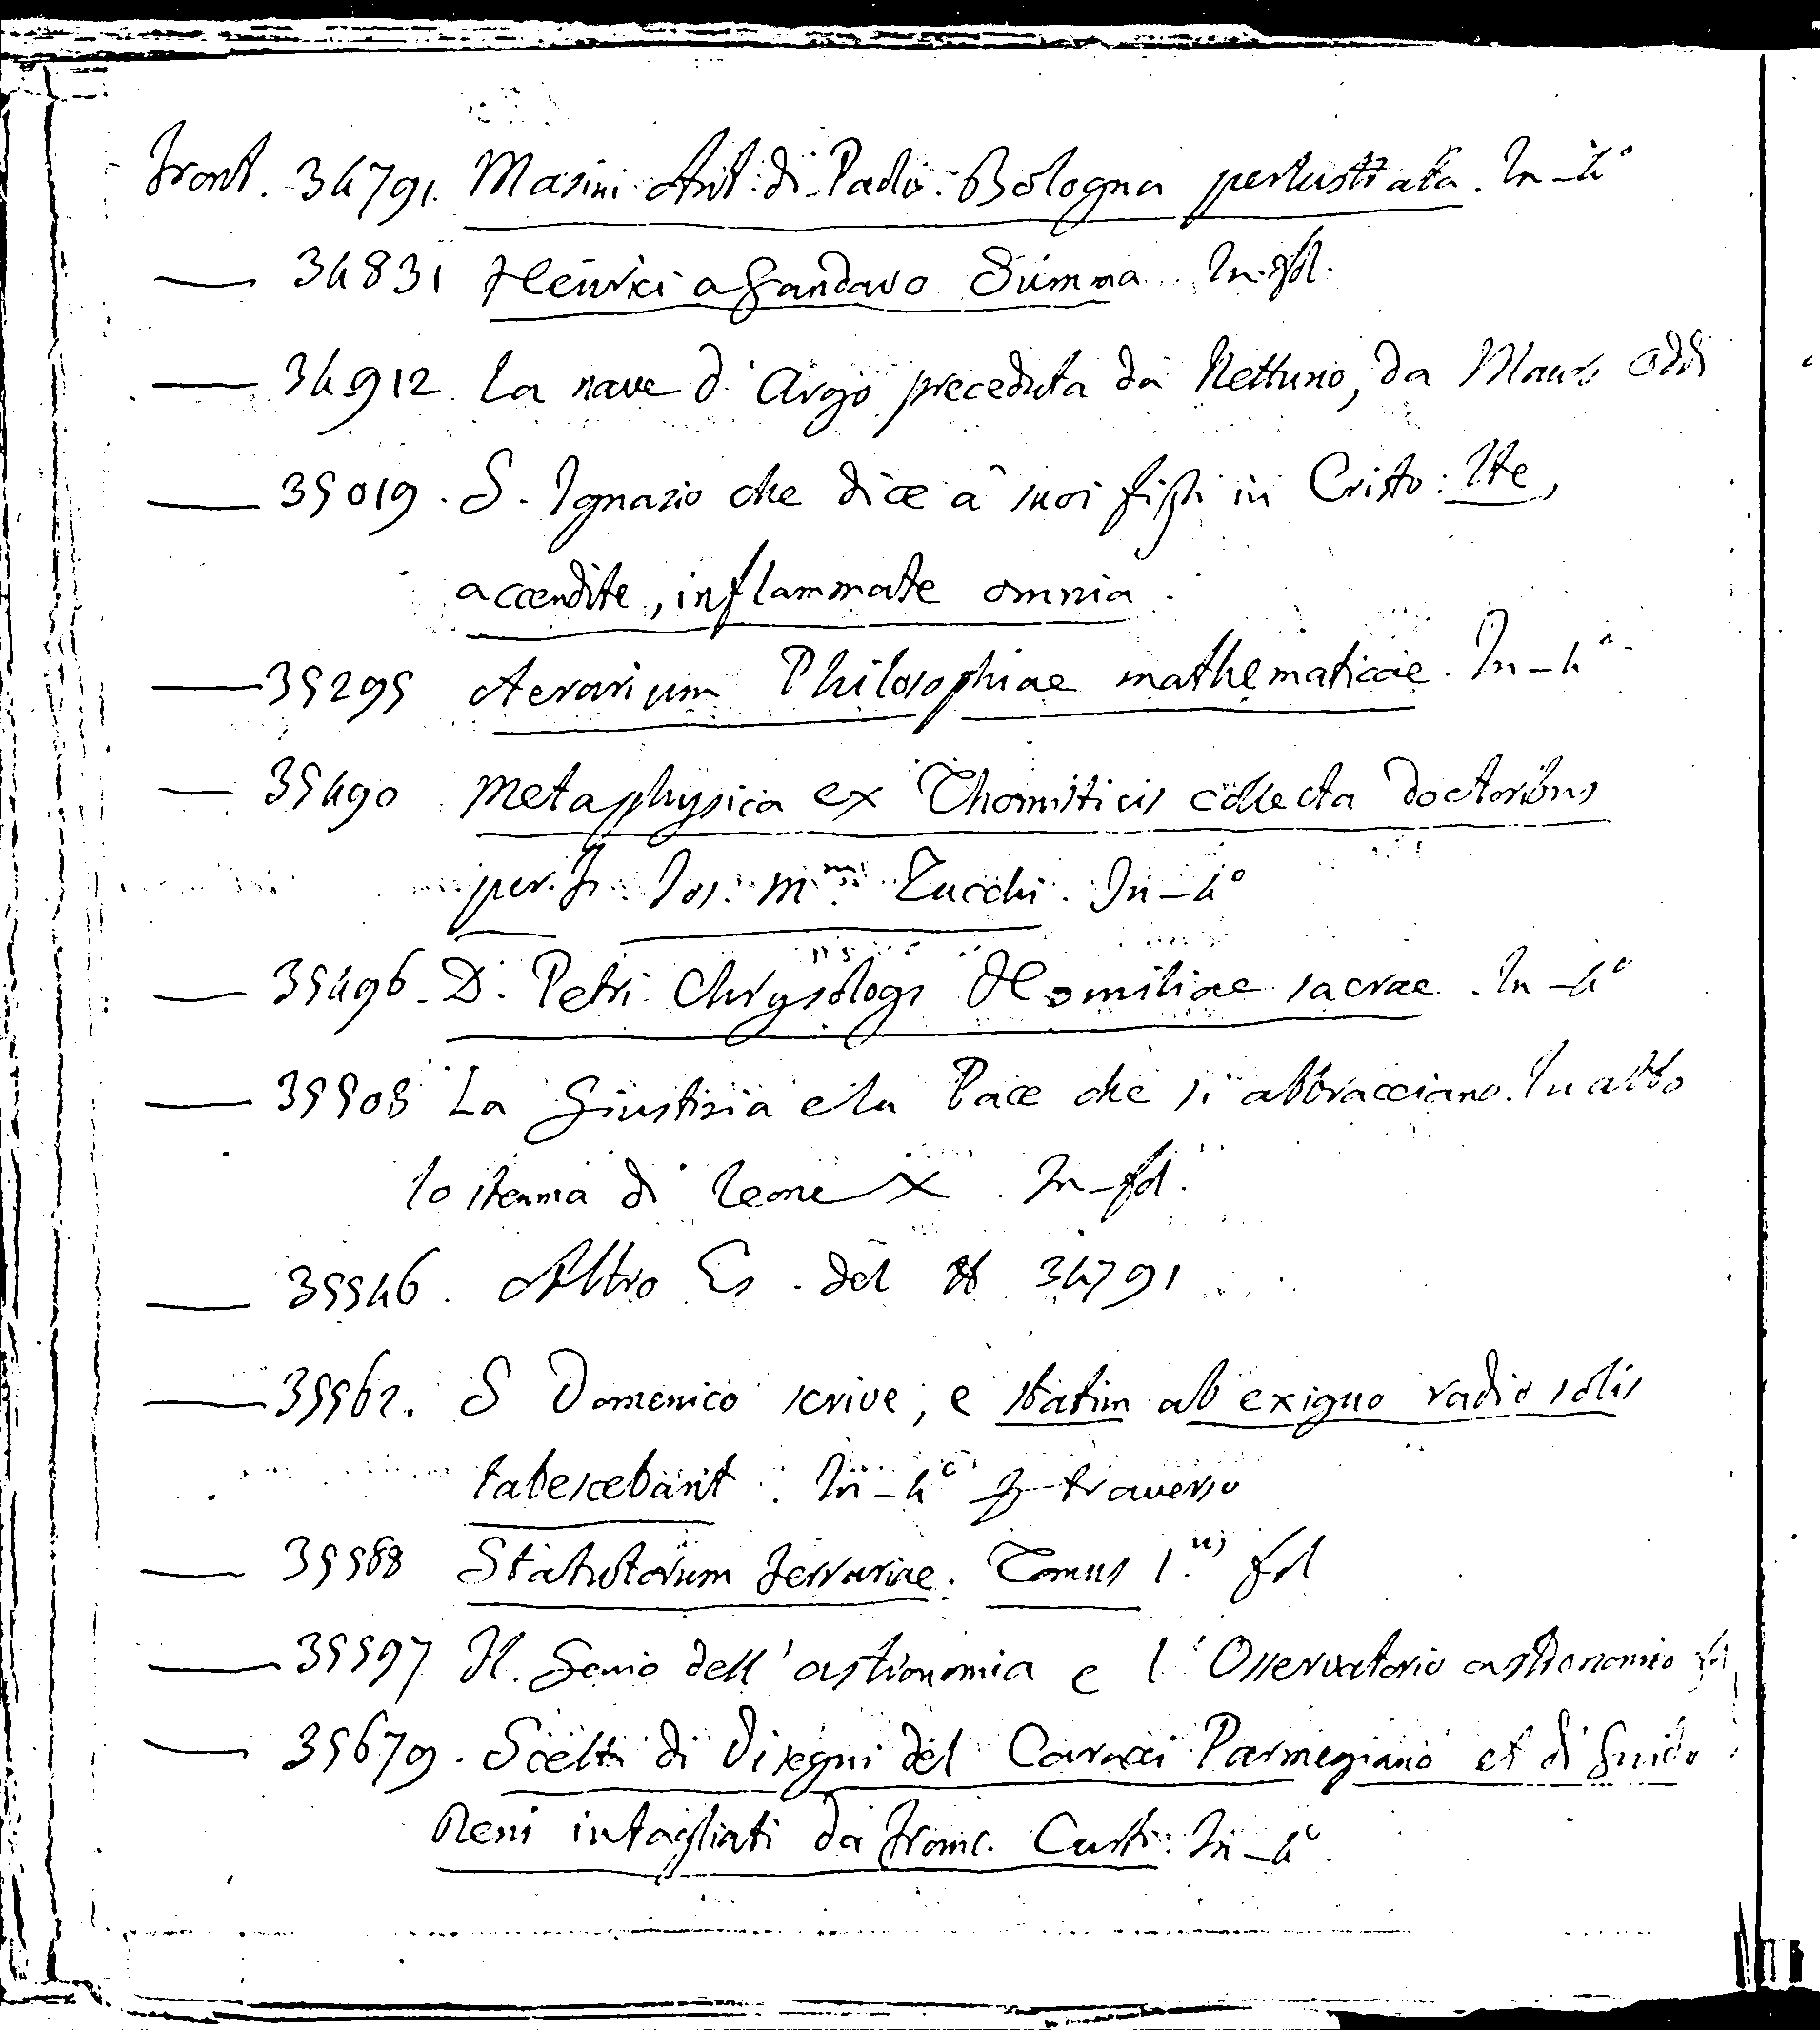 Front. 34791. Masini Ant: di Paolo. Bologna perlustrata. In-4°
— 34831 Henrici a Gandavo Summa. In-fol.
— 34912. La nave d'Argo preceduta da Nettuno, da Mauro Oddi
— 35019. S. Ignazio che dice a' suoi figli in Cristo: Ite,
accendite, inflammate omnia.
— 35295 Aerarium Philosophiae mathematicae. In-4°
— 35490 Metaphysica ex Thomisticis collecta doctoribus
per Fr. Jos. M.m Zucchi. In-4°
— 35496. D. Petri Chrysologi Homiliae sacrae. In-4°
— 35508 La Giustizia e la Pace che si abbracciano. In alto
lo stemma di Leone X. In-fol.
— 35546. Altro Es. del 34791
— 35562. S Domenico scrive, e statim ab exiguo radio solis
tabescebant. In-4° traverso
— 35588 Statutorum Ferrariae. Tomus 1.us fol
— 35597 Il Genio dell'astronomia e l'Osservatorio astronomico
— 35679. Scelta di Disegni del Caracci Parmegiano et di Guido
Reni intagliati da Franc. Curti: In-4°.